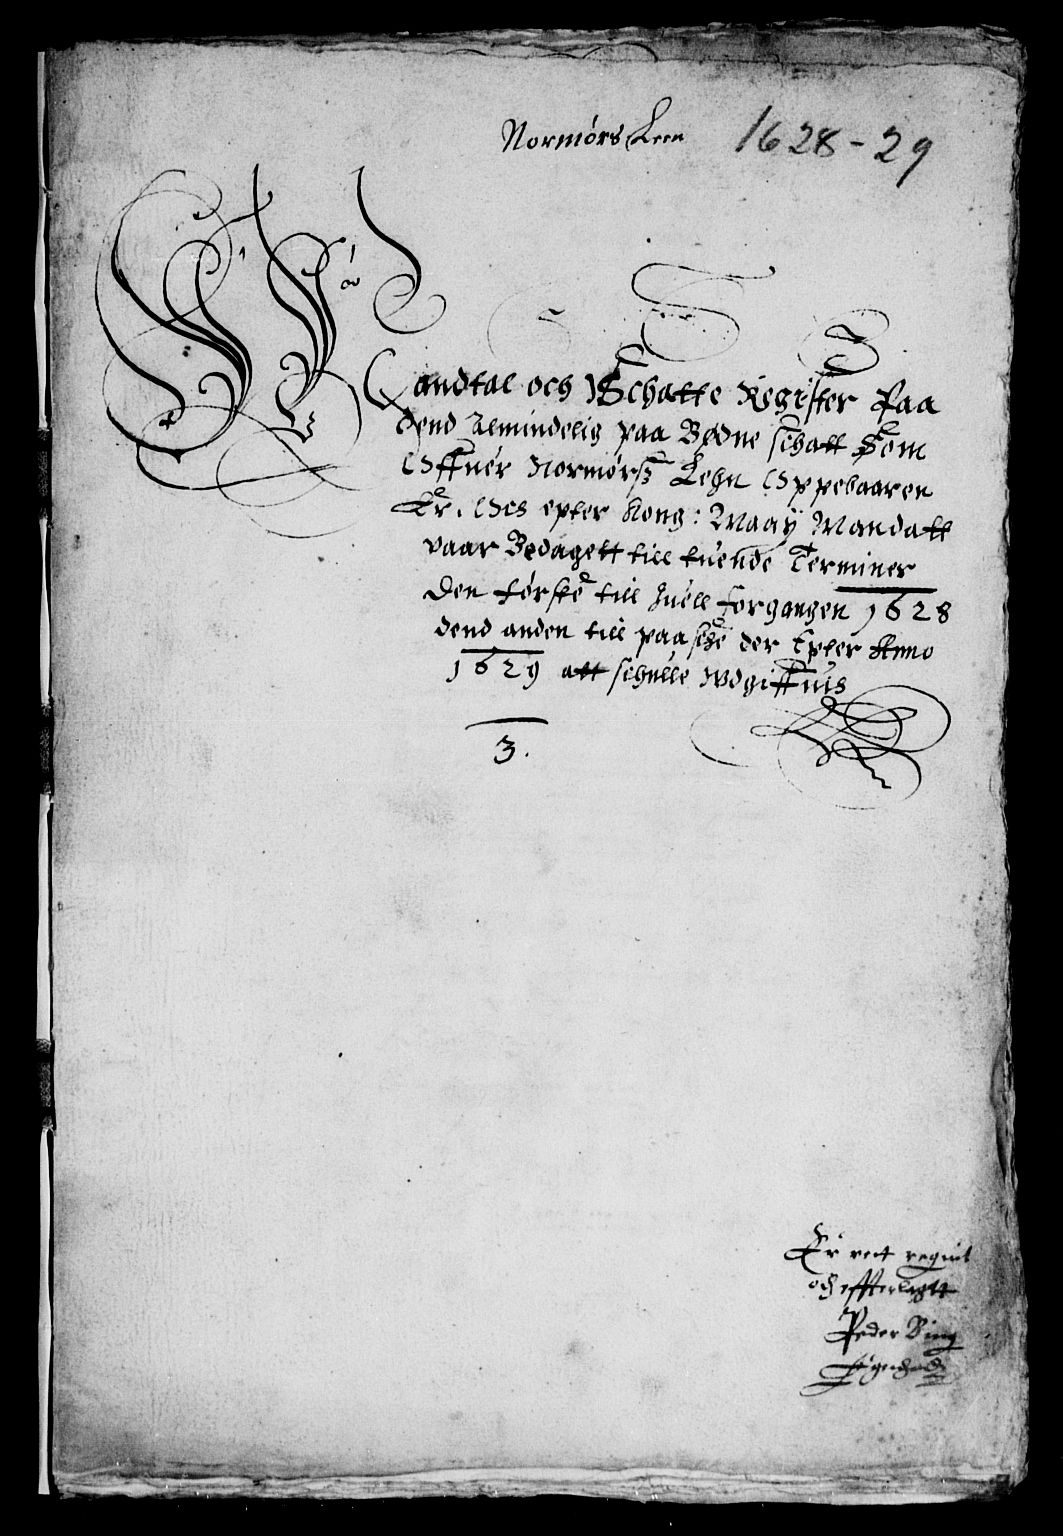 Normørs Leen 1628-29
Mandtal och Schatte Register Paa
dend Almindelig paa Bødne schatt Som
Offuer Normørs Lehn Oppebaaren
Er. Oes epter Kong: Maay Mandatt
vaar Bedagett till tuende Terminer
Den førske till Juell forgangen 1628
dend anden till paaske der Epter Anno
1629 att schulle Wdgiffuis
3.
Er rett
och effterlagtt
Peder